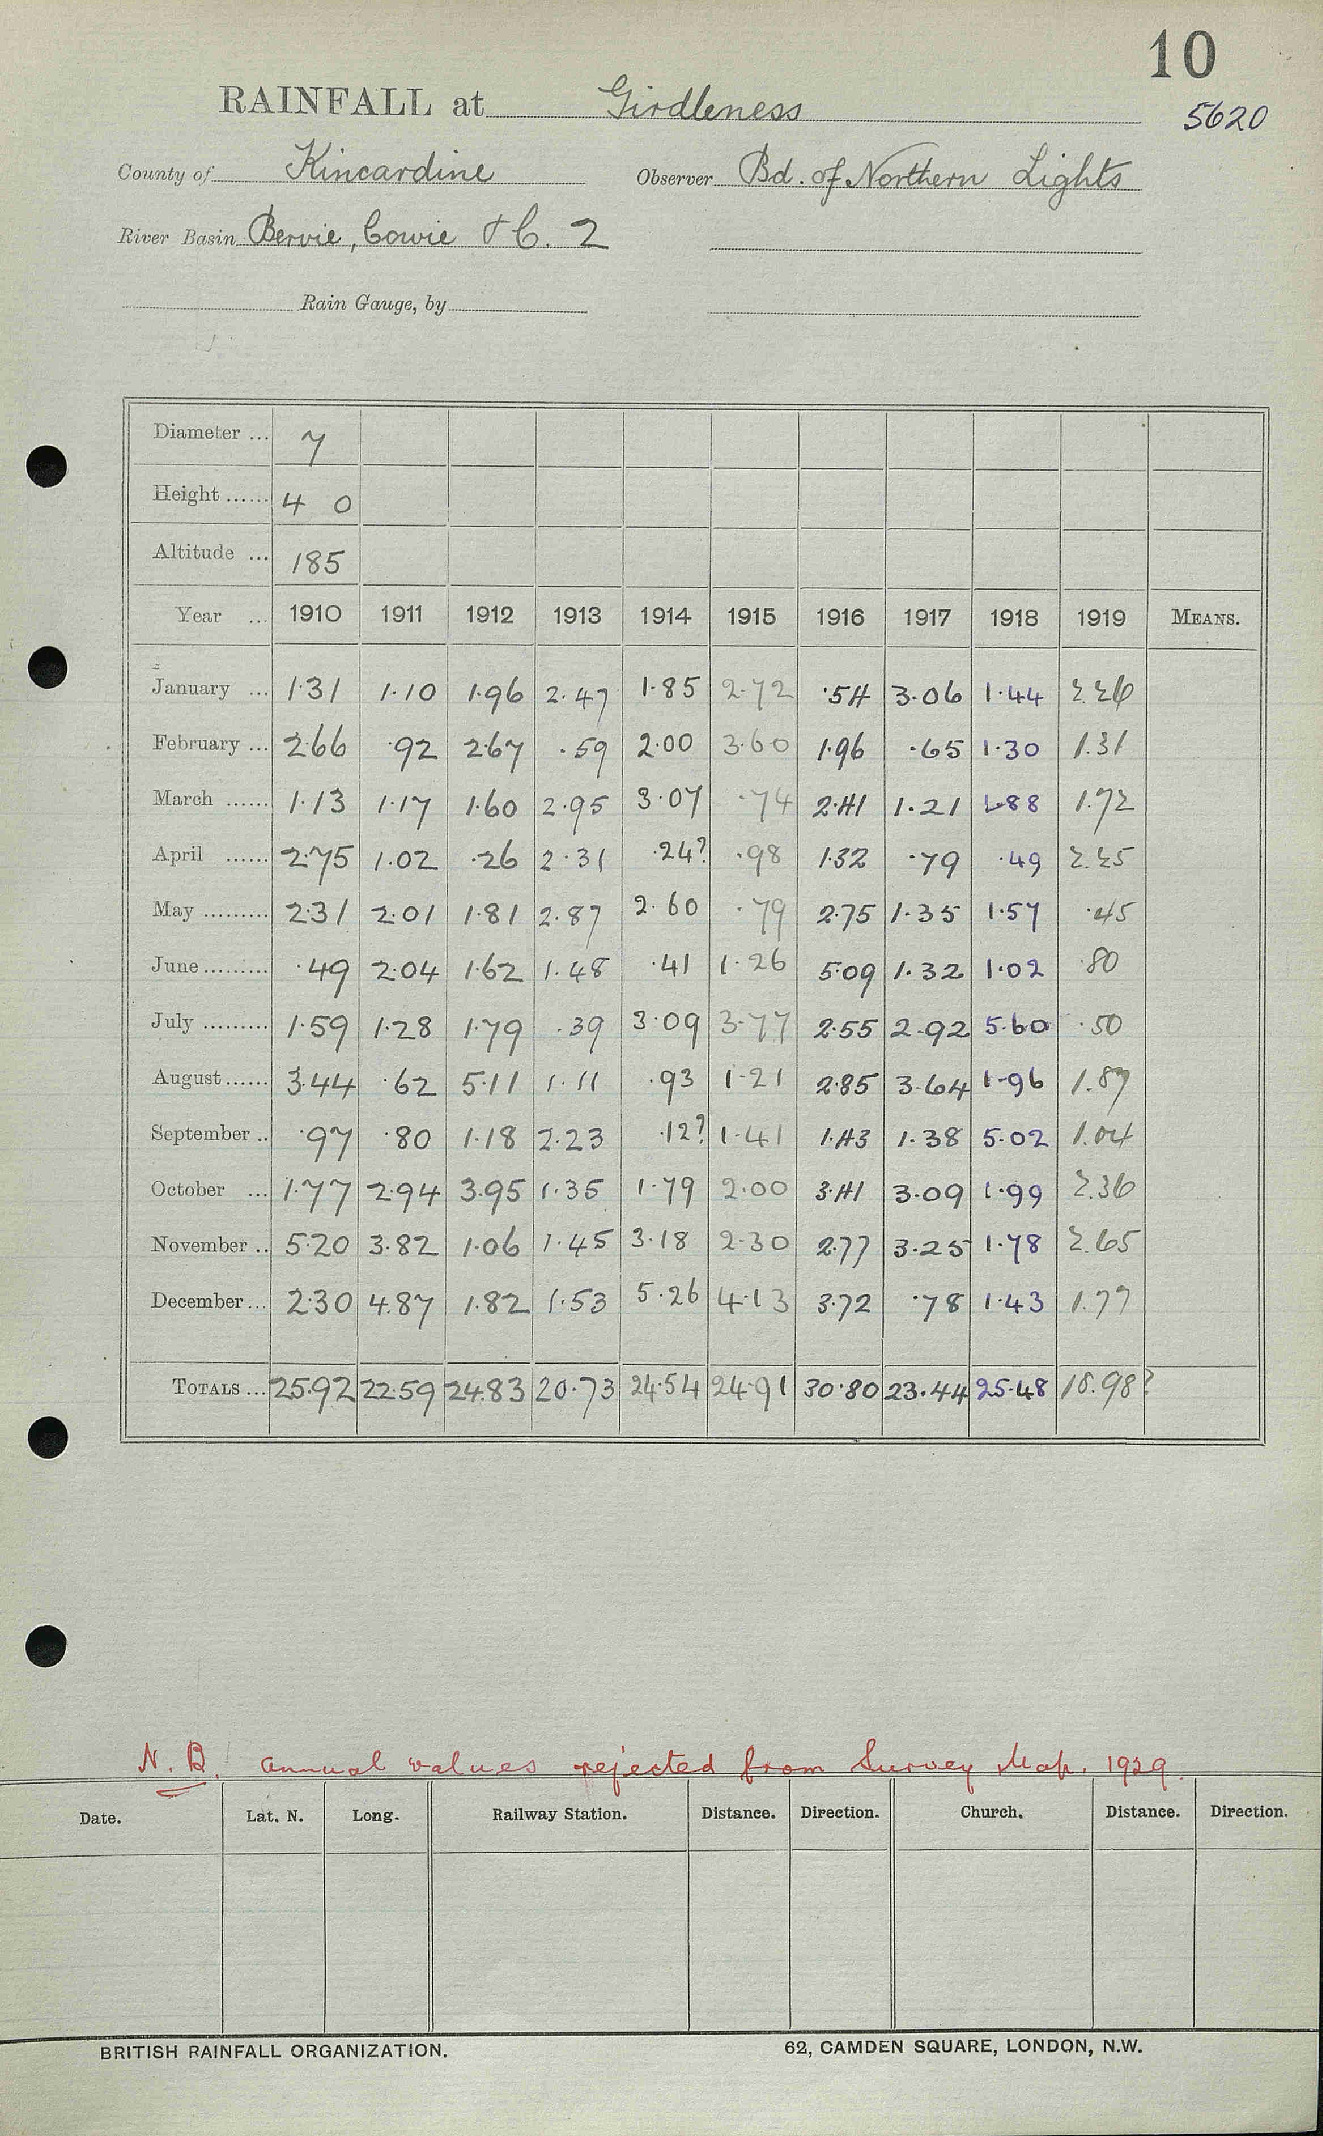 10
RAINFALL at Girdleness 5620
County of Kincardine Observer Bd. of Northern Lights
River Basin Bervie, Cowie &C. 2
Rain Gauge, by
Diameter ... 7
Height ...... 4 0
Altitude ... 185
Year ... 1910 1911 1912 1913 1914 1915 1916 1917 1918 1919 MEANS.
January ... 1.31 1.10 1.96 2.47 1.85 2.72 .54 3.06 1.44 2.26
February ... 2.66 .92 2.67 .59 2.00 3.60 1.96 .65 1.30 1.31
March ...... 1.13 1.17 1.60 2.95 3.07 .74 2.41 1.21 1.88 1.72
April ...... 2.75 1.02 .26 2.31 .24? .98 1.32 .79 .49 2.25
May ......... 2.31 2.01 1.81 2.87 2.60 .79 2.75 1.35 1.57 .45
June ......... .49 2.04 1.62 1.48 .41 1.26 5.09 1.32 1.02 .80
July ......... 1.59 1.28 1.79 .39 3.09 3.77 2.55 2.92 5.60 .50
August ...... 3.44 .62 5.11 1.11 .93 1.21 2.85 3.64 1.96 1.87
September .. .97 .80 1.18 2.23 .12? 1.41 1.43 1.38 5.02 1.04
October ... 1.77 2.94 3.95 1.35 1.79 2.00 3.41 3.09 1.99 2.36
November .. 5.20 3.82 1.06 1.45 3.18 2.30 2.77 3.25 1.78 2.65
December ... 2.30 4.87 1.82 1.53 5.26 4.13 3.72 .78 1.43 1.77
TOTALS ... 25.92 22.59 24.83 20.73 24.54 24.91 30.80 23.44 25.48 18.98?
N.B. annual values rejected from Survey Map. 1929.
Date. Lat. N. Long. Railway Station. Distance. Direction. Church. Distance. Direction.
BRITISH RAINFALL ORGANIZATION. 62, CAMDEN SQUARE, LONDON, N.W.